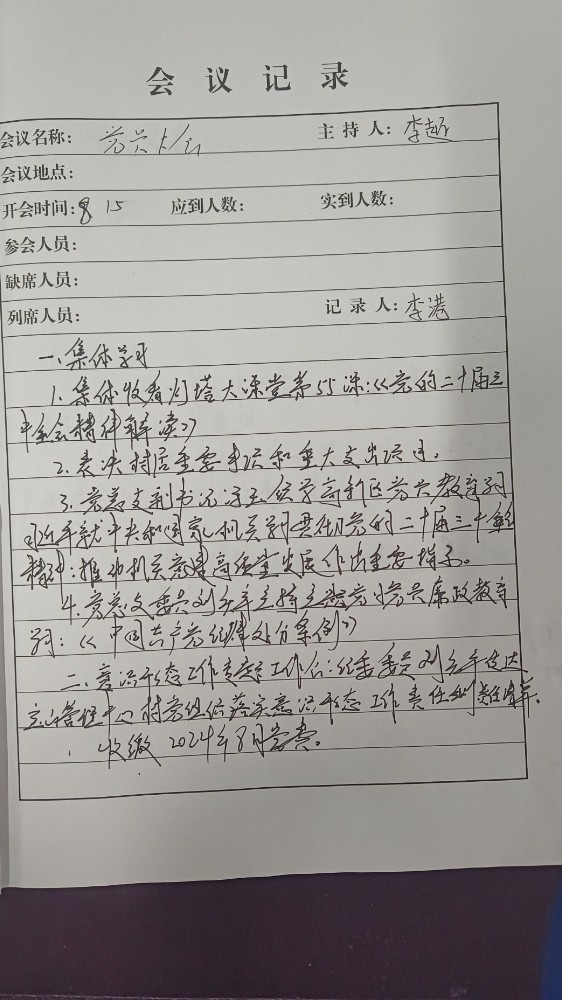 会议记录
会议名称: 党员大会 主持人: 李超
会议地点:
开会时间: 8 15 应到人数: 实到人数:
参会人员:
缺席人员:
列席人员: 记录人: 李港
一、集体学习
1. 集体收看灯塔大课堂第55课:《党的二十届三
中全会精神解读》
2. 表决村居重要事项和重大支出项目。
3. 党总支副书记 领学高新区党员教育
习近平就中央和国家机关 贯彻党的二十届三中全会
精神: 推动机关党建高质量发展作出重要指示。
4. 党总支委员刘 主持 党员廉政教育
学习: 《中国共产党纪律处分条例》
二、意识形态工作专题 工作: 纪委委员刘 传达
管理中心村党组织落实意识形态工作责任制责任清单。
收缴2024年8月党费。